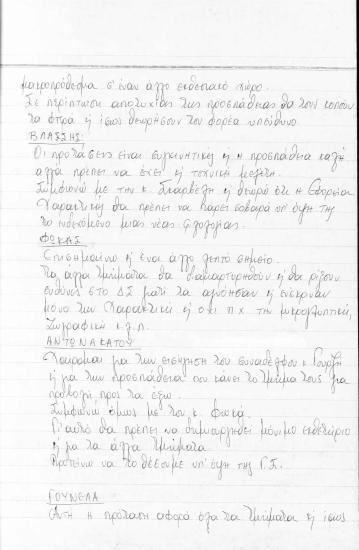 μακροπρόθεσμα σ' έναν άλλο εκθεσιακό χώρο.
Σε περίπτωση αποτυχίας της προσπάθειας θα τους κοπούν
τα φτρά ή ίσως θεωρήσουν τον φορέα υπεύθυνο.
ΒΛΑΣΣΗΣ:
Οι προτάσεις είναι συγκινητικές ή η προσπάθεια καλή
αλλά πρέπει να έχει ή τεχνική μελέτη.
Συμφωνώ με την κ. Σκαρβέλη ή θεωρώ ότι η Εφορεία
Χαρακτικής θα πρέπει να πάρει σοβαρά υπ' όψη της
το ενδεχόμενο μιας νέας
ΦΩΚΑΣ
Επισημαίνω ή ένα άλλο λεπτό σημείο.
Τα άλλα τμήματα θα διαμαρτυρηθούν ή θα ρίξουν
ευθύνες στο ΔΣ γιατί τα αγνόησαν ή ενέκριναν
μόνο την Χαρακτική ή όχι π.χ. την μικρογλυπτική,
ζωγραφική κ.λ.π.
ΑΝΤΩΝΑΚΑΤΟΥ
Χαίρομαι για την εισήγηση του συναδέλφου κ.
ή για την προσπάθεια που κάνει το τμήμα τους για
προβολή προς τα έξω.
Συμφωνώ όμως με τον κ. Φωκά.
Γι' αυτό θα πρέπει να δημιουργηθεί μόνιμο εκθετήριο
ή για τα άλλα τμήματα.
Προτείνω να το θέσουμε υπ' όψη της Γ.Σ.
ΓΟΥΝΕΛΑ
Αυτή η πρόταση αφορά όλα τα τμήματα ή ίσως